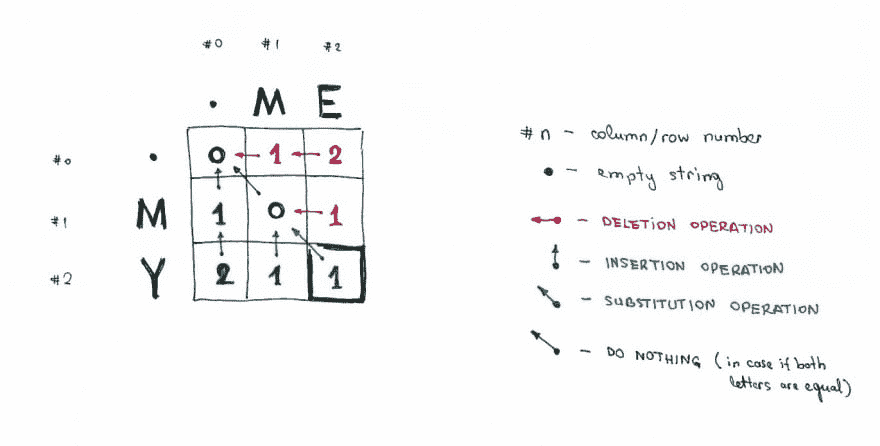 #0 #1 #2
. M E
#0 . 0 1 2
#1 M 1 0 1
#2 Y 2 1 1
#n - column/row number
• - empty string
- DELETION OPERATION
- INSERTION OPERATION
- SUBSTITUTION OPERATION
- DO NOTHING (in case if both
letters are equal)